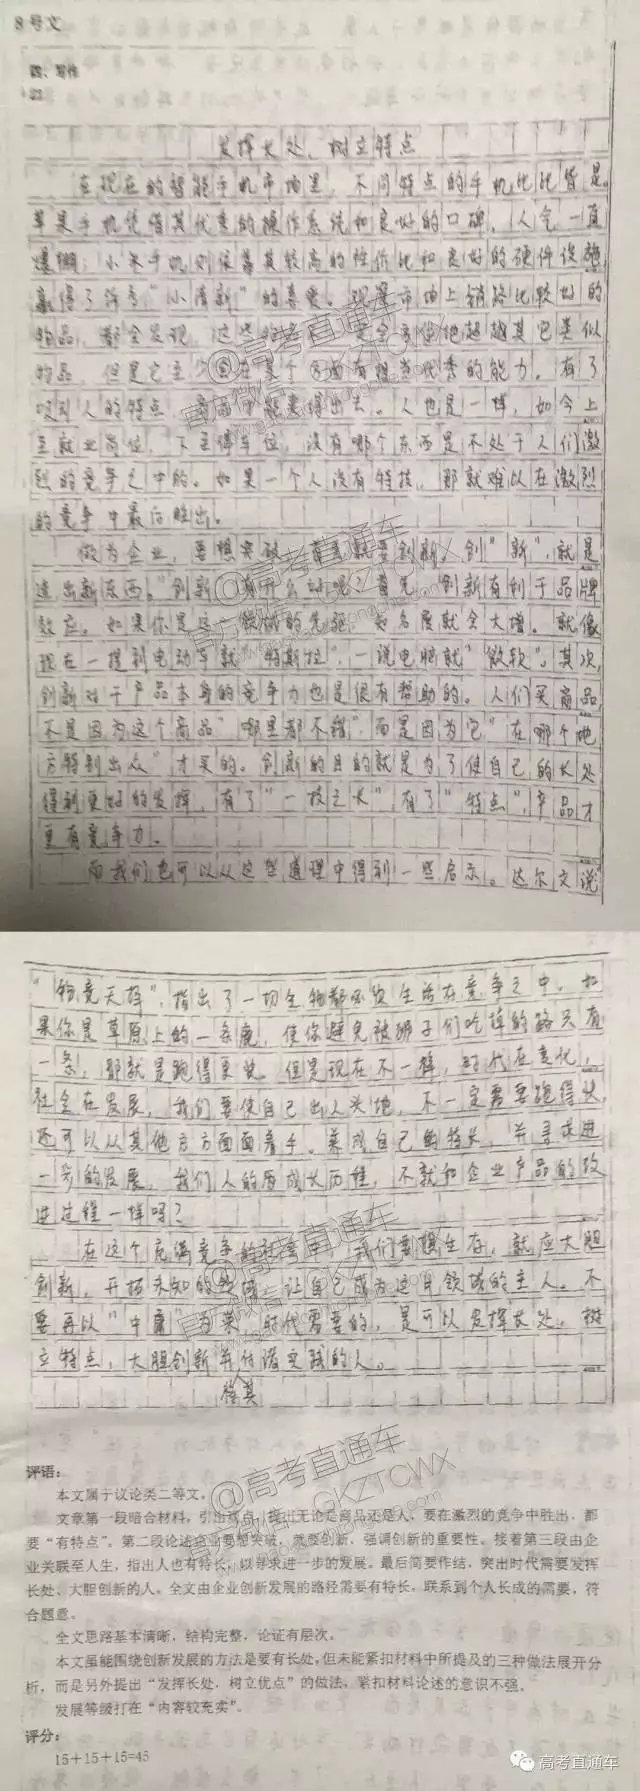 8号文
四、写作
发挥长处，树立特点
在现在的智能手机市场里，不同特点的手机比比皆是。
苹果手机凭借其优秀的操作系统和良好的口碑，人气一直
爆棚；小米手机则依靠其较高的性价比和良好的硬件设施，
赢得了许多“小清新”的喜爱。观察市面上销路比较好的
物品，都会发现，这些物品
物品，但是它至少会在某个方面有相当优秀的能力。有了
吸引人的特点，商品才能卖得出去。人也是一样，如今上
至就业岗位，下至停车位，没有哪个东西是不处于人们激
烈的竞争之中的。如果一个人没有特技，那就难以在激烈
的竞争中最后胜出。
做为企业，要想突破，首先就要创新。创“新”，就是
造出新东西。“创新”有什么好呢？首先，创新有利于品牌
效应。如果你是这一领域的先驱，知名度就会大增。就像
现在一提到电动车就“特斯拉”，一说电脑就“微软”。其次，
创新对于产品本身的竞争力也是很有帮助的。人们买商品，
不是因为这个商品“哪里都不错”，而是因为它“在哪个地
方特别出众”才买的。创新的目的就是为了使自己的长处
得到更好的发挥，有了“一技之长”，有了“特点”，产品才
更有竞争力。
而我们也可以从这些道理中得到一些启示。达尔文说
“物竞天择”，指出了一切生物都必须生活在竞争之中。如
果你是草原上的一条鹿，使你避免被狮子们吃掉的路只有
一条，那就是跑得更快。但是现在不一样，时代在变化，
社会在发展，我们要使自己出人头地，不一定需要跑得快，
还可以从其他方方面面着手。养成自己的特长，并寻求进
一步的发展。我们人的成长历程，不就和企业产品的改
进过程一样吗？
在这个充满竞争的社会中，我们要想生存，就应大胆
创新，开拓未知的领域，让自己成为这片领域的主人。不
要再以“中庸”为荣，时代需要的，是可以发挥长处，树
立特点，大胆创新并付诸实践的人。
将其
评语：
本文属于议论类二等文。
文章第一段暗合材料，引出特点，提出无论是商品还是人，要在激烈的竞争中胜出，都
要“有特点”。第二段论述企业要想突破，就要创新，强调创新的重要性。接着第三段由企
业关联至人生，指出人也有特长，以寻求进一步的发展。最后简要作结，突出时代需要发挥
长处、大胆创新的人。全文由企业创新发展的路径需要有特长，联系到个人长成的需要，符
合题意。
全文思路基本清晰，结构完整，论证有层次。
本文虽能围绕创新发展的方法是要有长处，但未能紧扣材料中所提及的三种做法展开分
析，而是另外提出“发挥长处，树立优点”的做法，紧扣材料论述的意识不强。
发展等级打在“内容较充实”。
评分：
15+15+15=45
@高考直通车
官方微信：GKZTCWX
@高考直通车
官方微信：GKZTCWX
@高考直通车
GKZTCWX
高考直通车